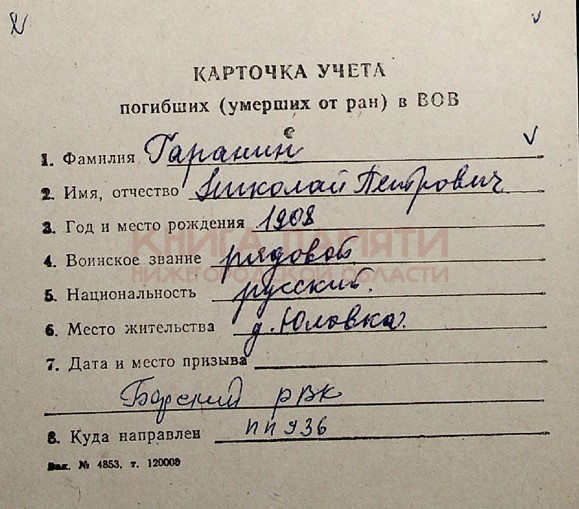 КАРТОЧКА УЧЕТА
погибших (умерших от ран) в ВОВ
1. Фамилия Гаранин
2. Имя, отчество Николай Петрович
3. Год и место рождения 1908
КНИГА ПАМЯТИ
4. Воинское звание рядовой
НИЖЕГОРОДСКОЙ ОБЛАСТИ
5. Национальность русский.
6. Место жительства д. Юловка.
7. Дата и место призыва
Борский РВК
8. Куда направлен ПП 936
Зак. № 4853, т. 120000